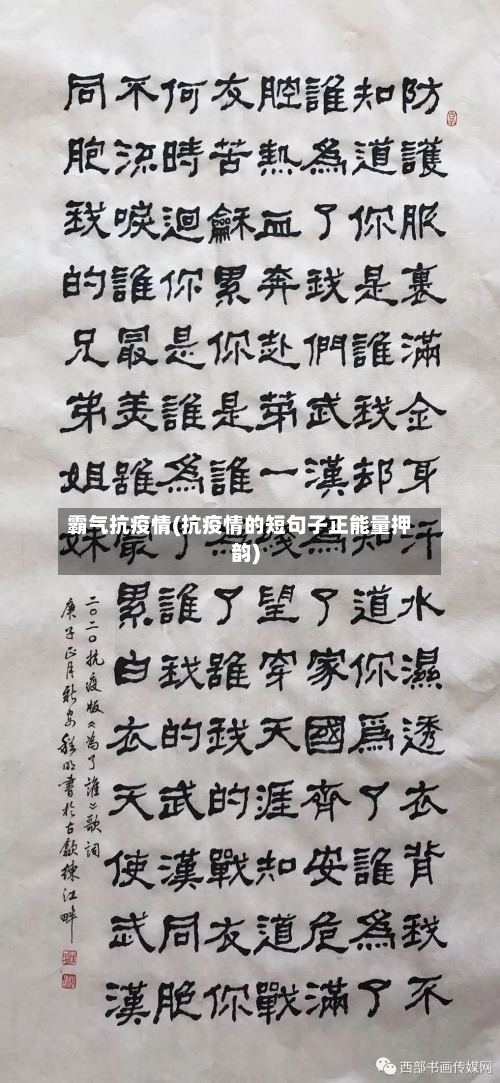 防護服裏滿全身汗水濕透衣背我不
知道你是誰我却知道你爲了誰為了
誰為了我們武漢為了家國齊安危滿
腔熱血奔赴第一綫望穿天涯知道戰
友苦龢累你是誰為了誰我的戰友你
何時迴你是誰為了誰我的武漢同胞
不流唳誰最美誰最累白衣天使武漢
同胞我的兄弟姐妹
二〇二〇抗疫版《為了誰》歌詞
庚子正月新安程明書於古歙練江畔
霸气抗疫情(抗疫情的短句子正能量押
韵)
西部书画传媒网